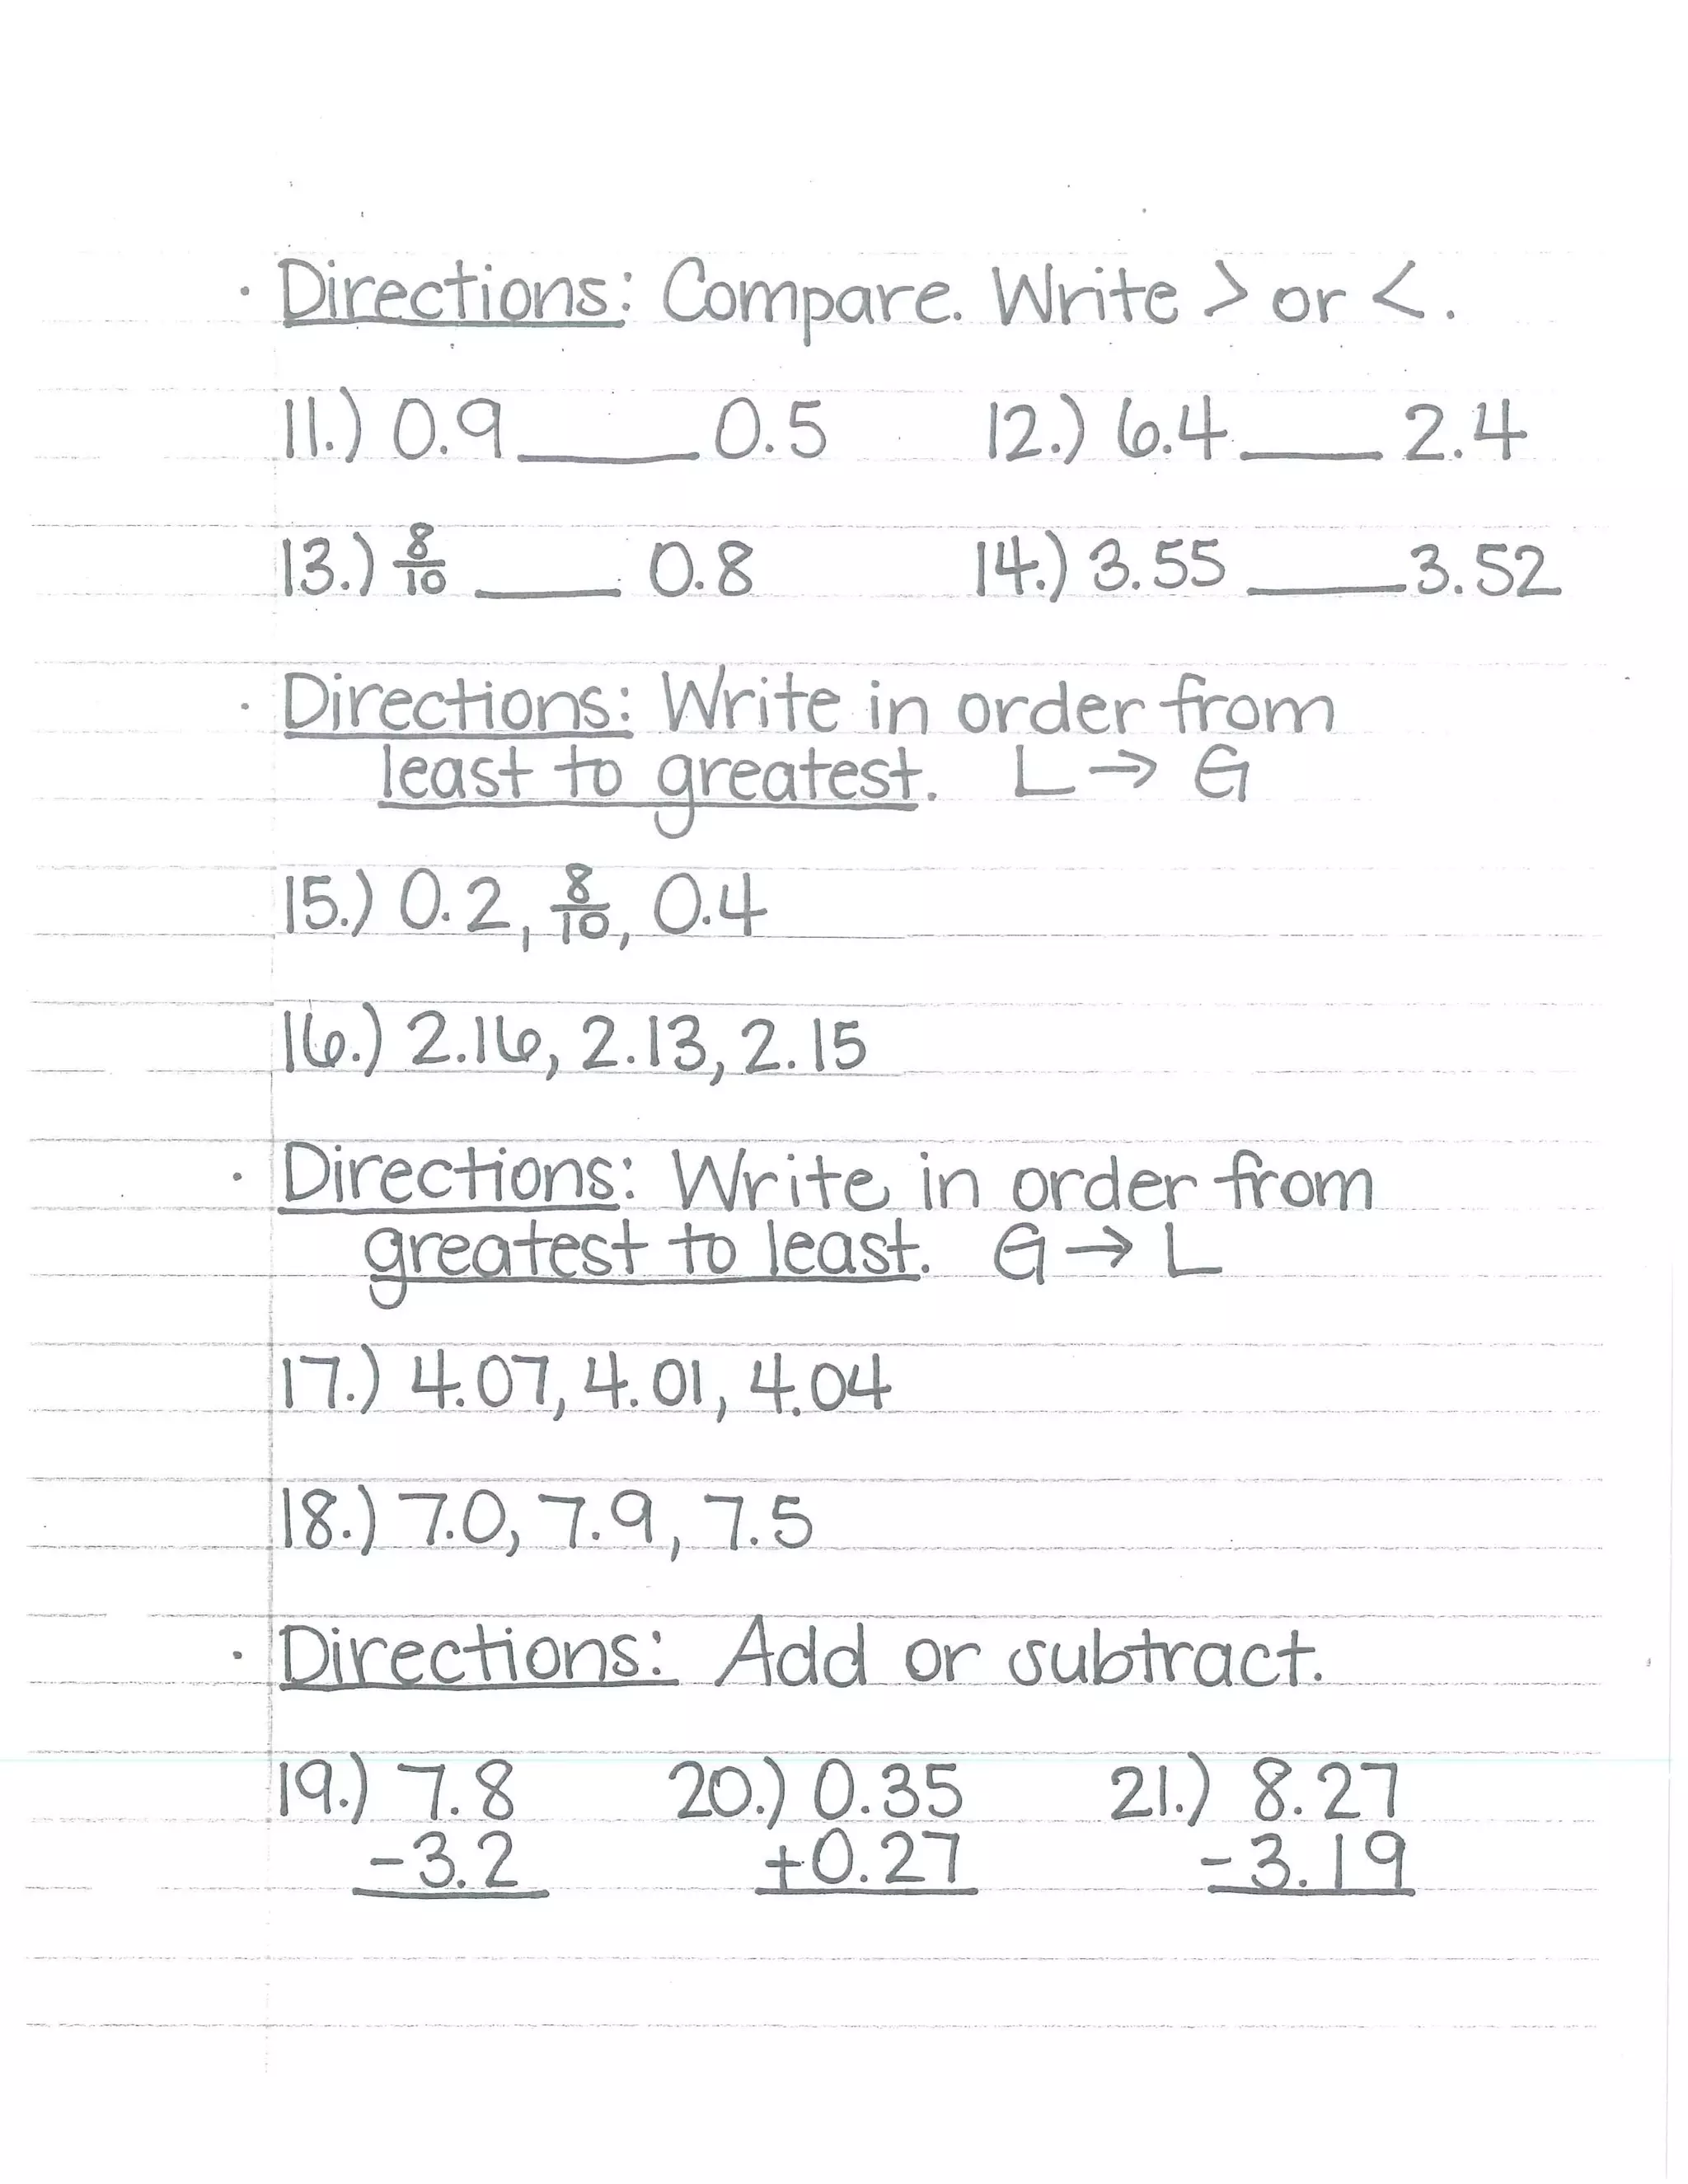 · Directions: Compare. Write > or <.
11.) 0.9 _____ 0.5 12.) 6.4 ____ 2.4
13.) 8/10 ____ 0.8 14.) 3.55 ____ 3.52
· Directions: Write in order from
least to greatest. L → G
15.) 0.2, 8/10, 0.4
16.) 2.16, 2.13, 2.15
· Directions: Write in order from
greatest to least. G → L
17.) 4.07, 4.01, 4.04
18.) 7.0, 7.9, 7.5
· Directions: Add or subtract.
19.) 7.8 20.) 0.35 21.) 8.27
-3.2 +0.27 -3.19